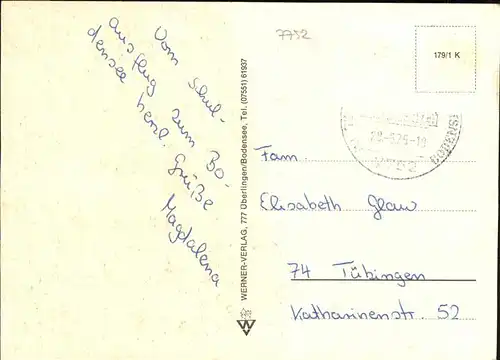 7752
179/1 K
Vom Schul-
ausflug zum Bo-
densee herzl. Grüße
Magdalena
WERNER-VERLAG, 777 Überlingen/Bodensee, Tel. (07551) 61937
Fam.
Elisabeth Glaw
74 Tübingen
Katharinenstr. 52